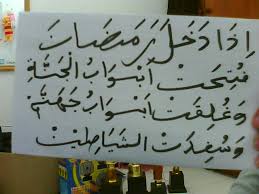 اِذَا دَخَلَ رَمَضَانَ
فُتِحَتْ اَبْوَابُ الْجَنَّةِ
وَغُلِقَتْ اَبْوَابُ جَهَنَّمَ
وَسُفِدَتْ الشَيَاطِينْ